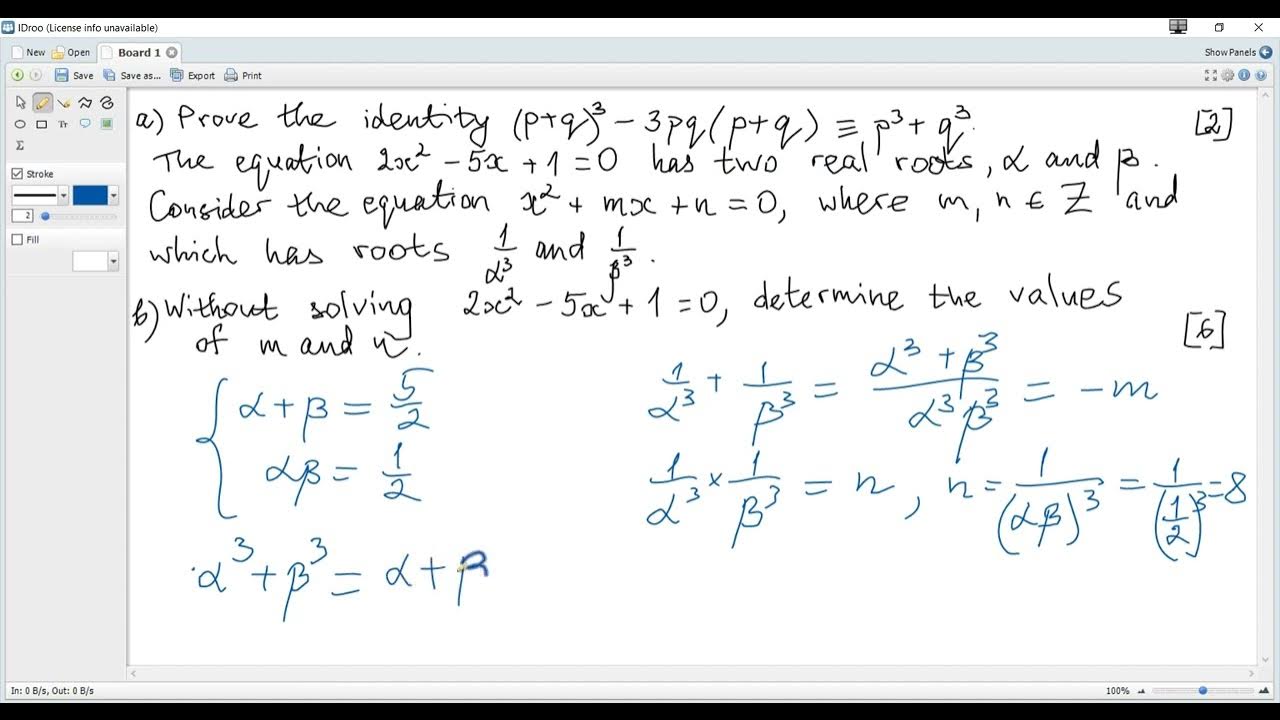 IDroo (License info unavailable)
New Open Board 1 Show Panels
Save Save as... Export Print
Tr
Σ
Stroke
2
Fill
a) Prove the identity (p+q)³ - 3pq(p+q) ≡ p³ + q³. [2]
The equation 2x² - 5x + 1 = 0 has two real roots, α and β.
Consider the equation x² + mx + n = 0, where m, n ∈ Z and
which has roots 1/α³ and 1/β³.
b) Without solving 2x² - 5x + 1 = 0, determine the values
of m and n. [6]
α + β = 5/2
αβ = 1/2
1/α³ + 1/β³ = (α³ + β³)/(α³β³) = -m
1/α³ × 1/β³ = n, n = 1/(αβ)³ = 1/(1/2)³ = 8
α³ + β³ = α + β
In: 0 B/s, Out: 0 B/s 100%